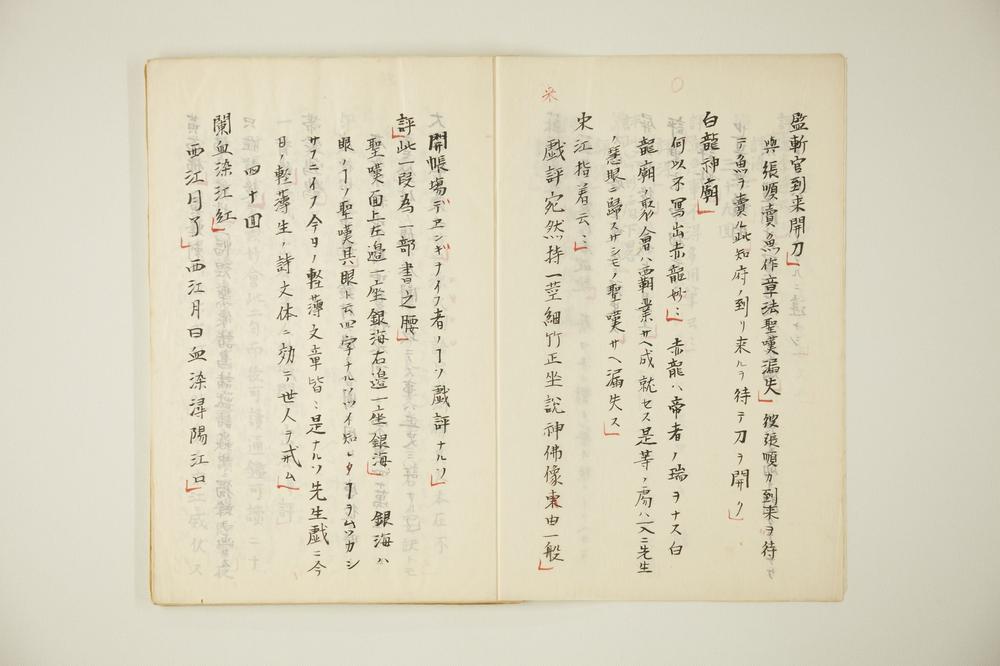 監斬官到来開刀」
與張順賣魚作章法聖嘆漏失」彼張順カ到来ヲ待
テ魚ヲ賣ル此知府ノ到リ来ルヲ待テ刀ヲ開ク」
白龍神廟」
何以不寫出赤龍妙〻赤龍ハ帝者ノ瑞ヲナス白
龍廟ノ聚會ハ覇業サヘ成就セス是等ノ處ハ一入ニ先生
ノ慧眼ニ歸スサシモノ聖嘆サヘ漏失ス」
宋江指着云〻」
戯評宛然持一莖細竹正坐說神佛像来由一般」
開帳塲デヱンギヲイフ者ノヿソ戯評ナルソ」
評」此一段為一部書之腰」
聖嘆面上左邉一坐銀海右邉一座銀海」銀海ハ
眼ノヿソ聖嘆其眼ト云四字ナルソツイ知レタヿヲムツカシ
サフニイフ今日ノ輕薄文章皆〻是ナルソ先生戯ニ今
日ノ輕薄生ノ詩文体ニ効テ世人ヲ戒ム」
四十回
闌血染江紅」
西江月了」西江月曰血染潯陽江口」